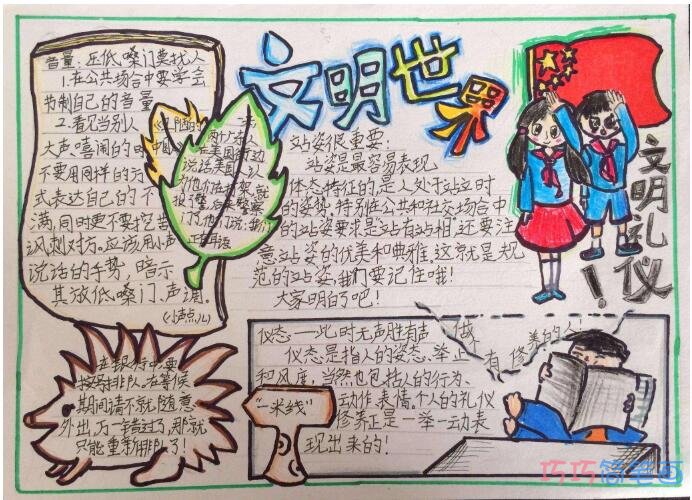 文明世界
音量:压低嗓门莫找人
1.在公共场合中要学会
节制自己的音量
2.看见当别人
大声、喧闹的时
不要用同样的方
式表达自己的不
满,同时更不要挖苦
讽刺对方。应该用小声
说话的手势,暗示
其放低嗓门、声调。
(小声点儿)
站姿很重要:
站姿是最容易表现
体态特征的是人处于站立时
的姿势。特别在公共和社交场合中
的站姿要求是“站有站相”,还要注
意站姿的优美和典雅。这就是规
范的站姿,我们要记住哦!
大家明白了吧!
文明礼仪!
在银行中要
按号排队,在等候
期间请不就随意
外出,万一错过了,那就
只能重新排队了!
“一米线”
仪态——此时无声胜有声
仪态是指人的姿态、举止
和风度,当然也包括人的行为、
动作表情。个人的礼仪
修养正是一举一动表
现出来的!
做
有修养的人!
巧巧简笔画